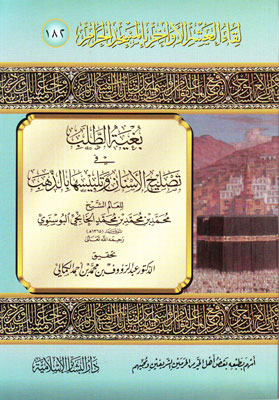 لقاء العشر الأواخر بالمسجد الحرام
١٨٢
بغية الطالب
في
تصليح الأسنان وتلبيسها بالذهب
للعالم الشيخ
محمد بن محمد بن محمد الخانجي البوسنوي
رحمه الله تعالى
تحقيق
الدكتور عبد الرؤوف بن محمد بن أحمد الكمالي
أسهم بطبعه بعض أهل الخير من الحرمين الشريفين ومحبيهم
دار البشائر الإسلامية